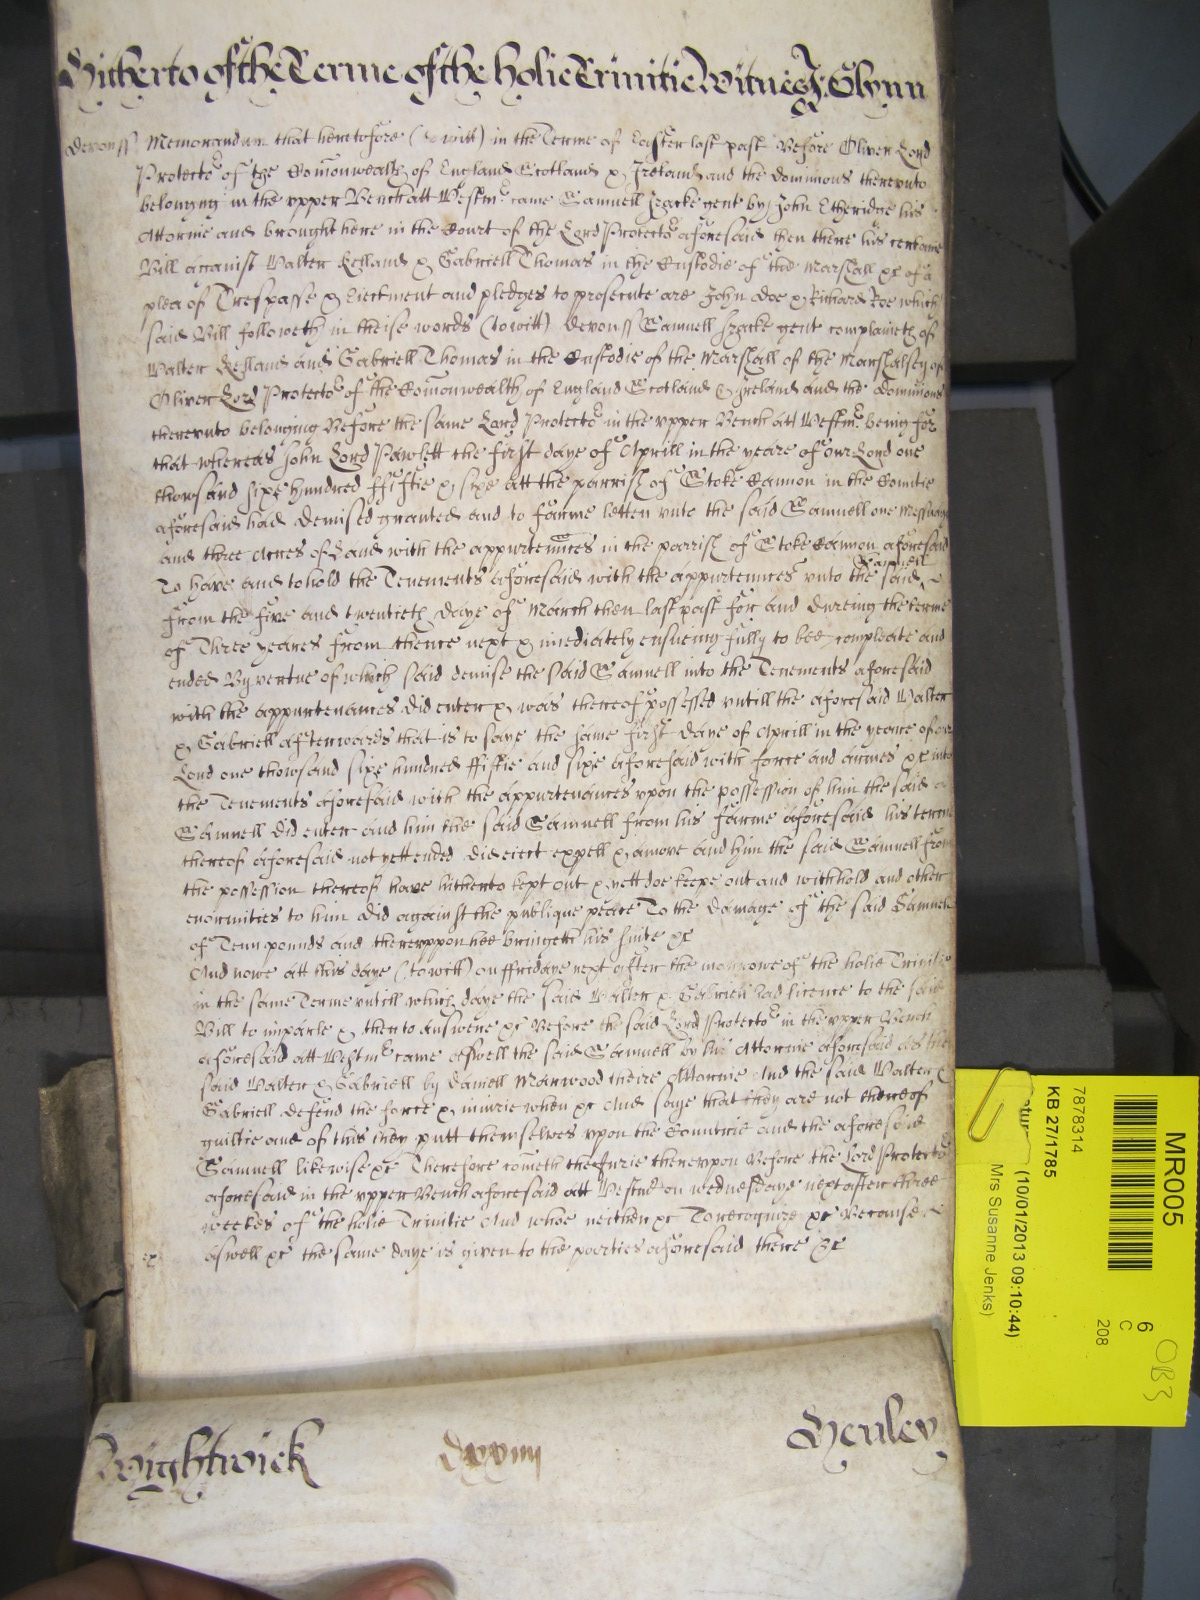 Hitherto of the Terme of the holie Trinitie Witnes J: Glynn
Devon ss Memorandum that heretofore (to witt) in the Terme of Easter last past Before Oliver Lord
Protector of the Comonwealth of England Scotland & Ireland and the dominions therevnto
belonging in the vpper Bench att Westmr came Samuell Izacke gent by John Etheridge his
Attornie and brought here in the Court of the Lord Protector aforesaid then there his certaine
Bill against Walter Kelland & Gabriell Thomas in the Custodie of the Marshall &c of a
plea of Trespasse & Eiectment and pledges to prosecute are John doe & Richard Roe which
said Bill followeth in theise words (to witt) Devon ss Samuell Izacke gent complaineth of
Walter Kelland and Gabriell Thomas in the Custodie of the Marshall of the Marshalsey of
Oliver Lord Protector of the Comonwealth of England Scotland & Ireland and the Dominions
therevnto belonging Before the same Lord Protector in the vpper Bench att Westmr being for
that whereas John Lord Pawlett the first daye of Aprill in the yeare of our Lord one
thowsand sixe hundred ffiftie & sixe att the parrish of Stoke Cannon in the Countie
aforesaid had demised granted and to farme letten vnto the said Samuell one Messuage
and three Acres of Land with the appurtennces in the parrish of Stoke Cannon aforesaid
To have and to hold the Tenements aforesaid with the appurtennces vnto the said Samuell
from the five and twentieth daye of March then last past for and dureing the terme
of Three yeares from thence next & imediately ensueing fully to bee compleate and
ended By vertue of which said demise the said Samuell into the Tenements aforesaid
with the appurtenances did enter & was thereof possessed vntill the aforesaid Walter
& Gabriell afterwards that is to saye the same first daye of Aprill in the yeare of our
Lord one thowsand sixe hundred ffiftie and sixe aforesaid with force and armes &c into
the Tenements aforesaid with the appurtenances vpon the possession of him the said
Samuell did enter and him the said Samuell from his farme aforesaid his terme
thereof aforesaid not yett ended did eiect expell & amove and him the said Samuell from
the possession thereof have hitherto kept out & yett doe keepe out and withhold and other
enormities to him did against the publique peace To the damage of the said Samuell
of Tenn pounds and therevppon hee bringeth his suite &c
And nowe att this daye (to witt) on ffridaye next after the morrowe of the holie Trinitie
in the same Terme vntill which daye the said Walter & Gabriell had licence to the said
Bill to imparle & then to answere &c Before the said Lord Protector in the vpper Bench
aforesaid att Westmr came aswell the said Samuell by his Attornie aforesaid as the
said Walter & Gabriell by Daniell Manwood theire Attornie And the said Walter &
Gabriell defend the force & iniurie when &c And saye that they are not thereof
guiltie and of this they putt themselves vpon the Countrie and the aforesaid
Samuell likewise &c Therefore cometh the Jurie therevpon Before the Lord Protector
aforesaid in the vpper Bench aforesaid att Westmr on wednesdaye next after three
weekes of the holie Trinitie And whoe neither &c To recognize &c Because
aswell &c the same daye is given to the parties aforesaid there &c
ex
Wightwick
Henley
MR005
6
C
208
OB3
7878314
KB 27/1785
(10/01/2013 09:10:44)
Mrs Susanne Jenks)